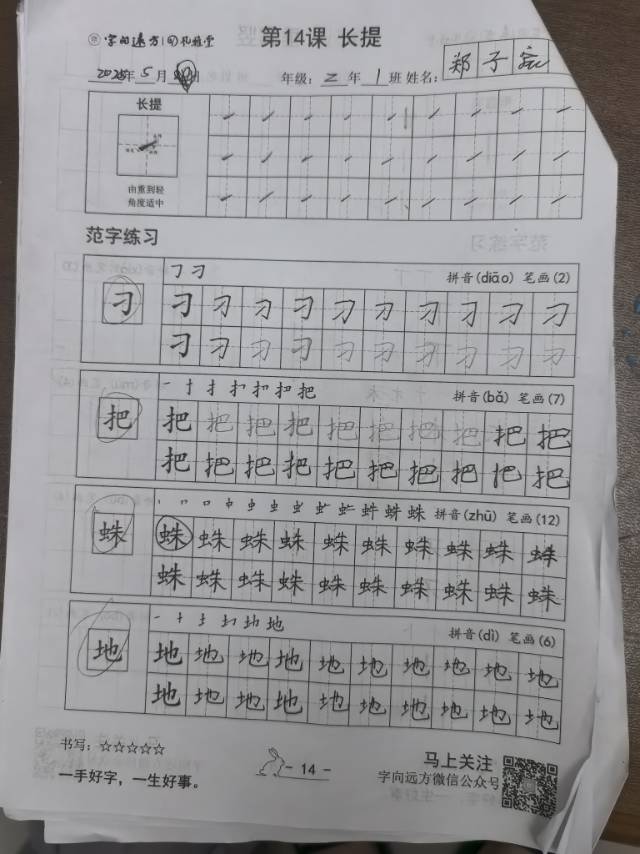 字向远方 第14课 长提
2025年5月 年级：二年1班 姓名：郑子
长提
由重到轻
角度适中
范字练习
拼音(diāo) 笔画(2)
刁 刁 刁 刁 刁 刁 刁 刁 刁 刁 刁
刁 刁 刁 刁 刁 刁 刁 刁 刁 刁
拼音(bǎ) 笔画(7)
把 把 把 把 把 把 把 把 把 把 把
把 把 把 把 把 把 把 把 把 把
拼音(zhū) 笔画(12)
蛛 蛛 蛛 蛛 蛛 蛛 蛛 蛛 蛛 蛛 蛛
蛛 蛛 蛛 蛛 蛛 蛛 蛛 蛛 蛛 蛛
拼音(dì) 笔画(6)
地 地 地 地 地 地 地 地 地 地 地
地 地 地 地 地 地 地 地 地 地
书写：☆☆☆☆☆
一手好字，一生好事。
- 14 -
马上关注
字向远方微信公众号